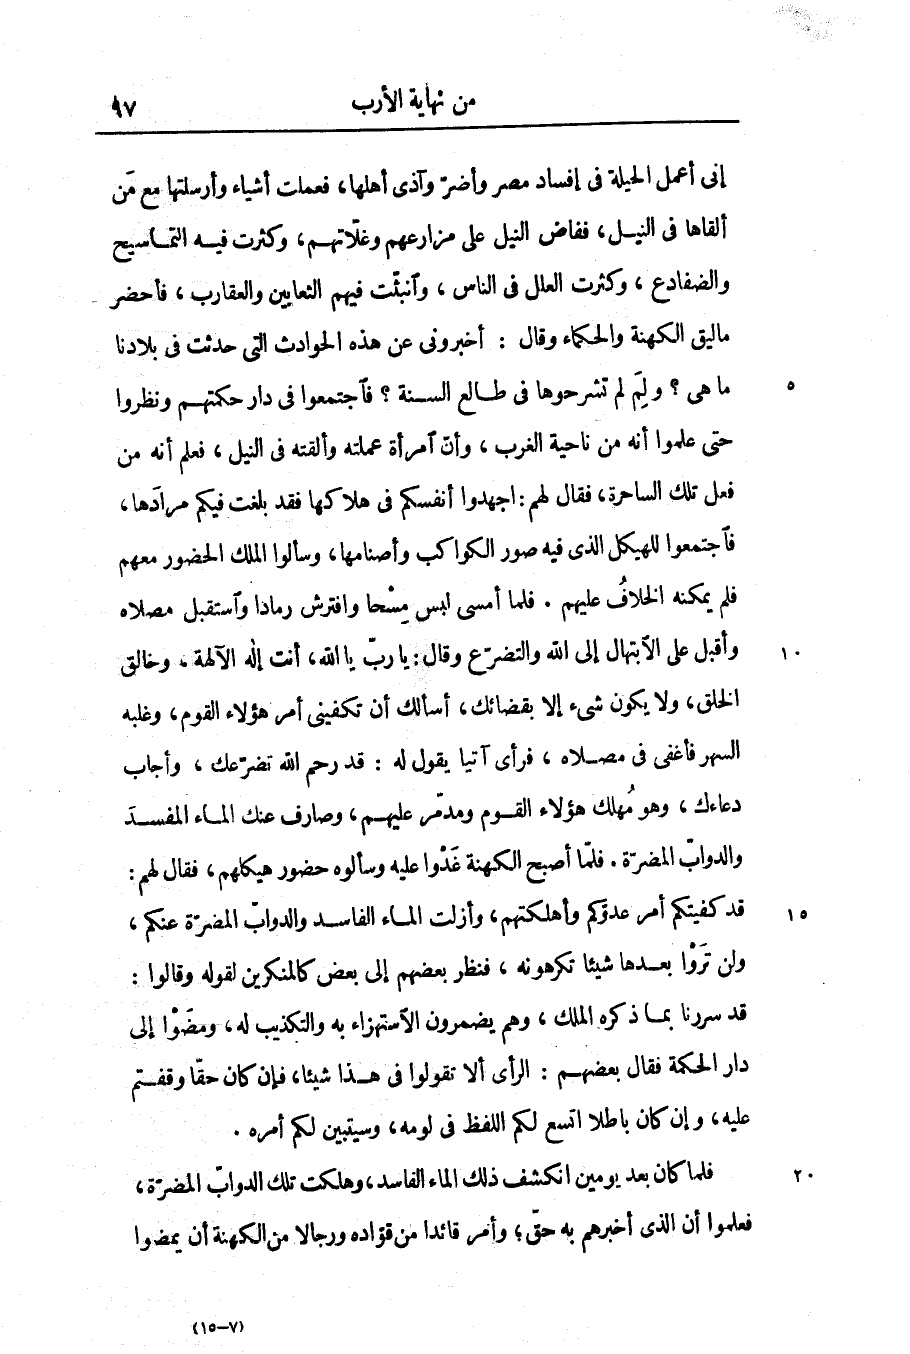 من نهاية الأرب ٩٧
إنى أعمل الحيلة فى إفساد مصر وأضرّ وآذى أهلها، فعملت أشياء وأرسلتها مع مَن
ألقاها فى النيـل، ففاض النيل على مزارعهم وغلّاتهـم، وكثرت فيـه التمـاسيح
والضفادع ، وكثرت العلل فى الناس ، وٱنبثّت فيهم الثعابين والعقارب ، فأحضر
ماليق الكهنة والحكماء وقال : أخبرونى عن هذه الحوادث التى حدثت فى بلادنا
ما هى ؟ ولِمَ لم تشرحوها فى طـالع السـنة ؟ فٱجتمعوا فى دار حكمتهـم ونظروا ٥
حتى علموا أنه من ناحية الغرب ، وأنّ ٱمرأة عملته وألقته فى النيل ، فعلم أنه من
فعل تلك الساحرة، فقال لهم: اجهدوا أنفسكم فى هلاكها فقد بلغت فيكم مرادَها،
فٱجتمعوا للهيكل الذى فيه صور الكواكب وأصنامها، وسألوا الملك الحضور معهم
فلم يمكنه الخلافُ عليهم . فلما أمسى لبس مِسْحا وافترش رمادا وٱستقبل مصلاه
وأقبل على الٱبتهال إلى الله والتضرّع وقال: يا ربّ يا الله، أنت إله الآلهة ، وخالق ١٠
الخلق، ولا يكون شىء إلا بقضائك، أسألك أن تكفينى أمر هؤلاء القوم، وغلبه
السهر فأغفى فى مصـلاه ، فرأى آتيا يقول له : قد رحم الله تضرّعك ، وأجاب
دعاءك ، وهو مُهلك هؤلاء القـوم ومدمّر عليهـم، وصارف عنك المـاء المفسـدَ
والدوابّ المضرّة . فلمّا أصبح الكهنة غَدْوا عليه وسألوه حضور هيكلهم ، فقال لهم:
قد كفيتكم أمر عدوّكم وأهلكتهم، وأزلت المـاء الفاسـد والدوابّ المضرّة عنكم ، ١٥
ولن تَرَوْا بعـدها شيئا تكرهونه ، فنظر بعضهم إلى بعض كالمنكرين لقوله وقالوا :
قد سررنا بمـا ذكره الملك ، وهم يضمرون الٱستهزاء به والتكذيب له، ومضَوْا إلى
دار الحكمة فقال بعضهـم : الرأى ألا تقولوا فى هـذا شيئا، فإن كان حقّا وقفـتم
عليه، وإن كان باطلا اتسع لكم اللفظ فى لومه، وسيتبين لكم أمره .
فلما كان بعد يومين انكشف ذلك الماء الفاسد، وهلكت تلك الدوابّ المضرّة، ٢٠
فعلموا أن الذى أخبرهم به حقّ؛ وأمر قائدا من قوّاده ورجالا من الكهنة أن يمضوا
(٧-١٥)